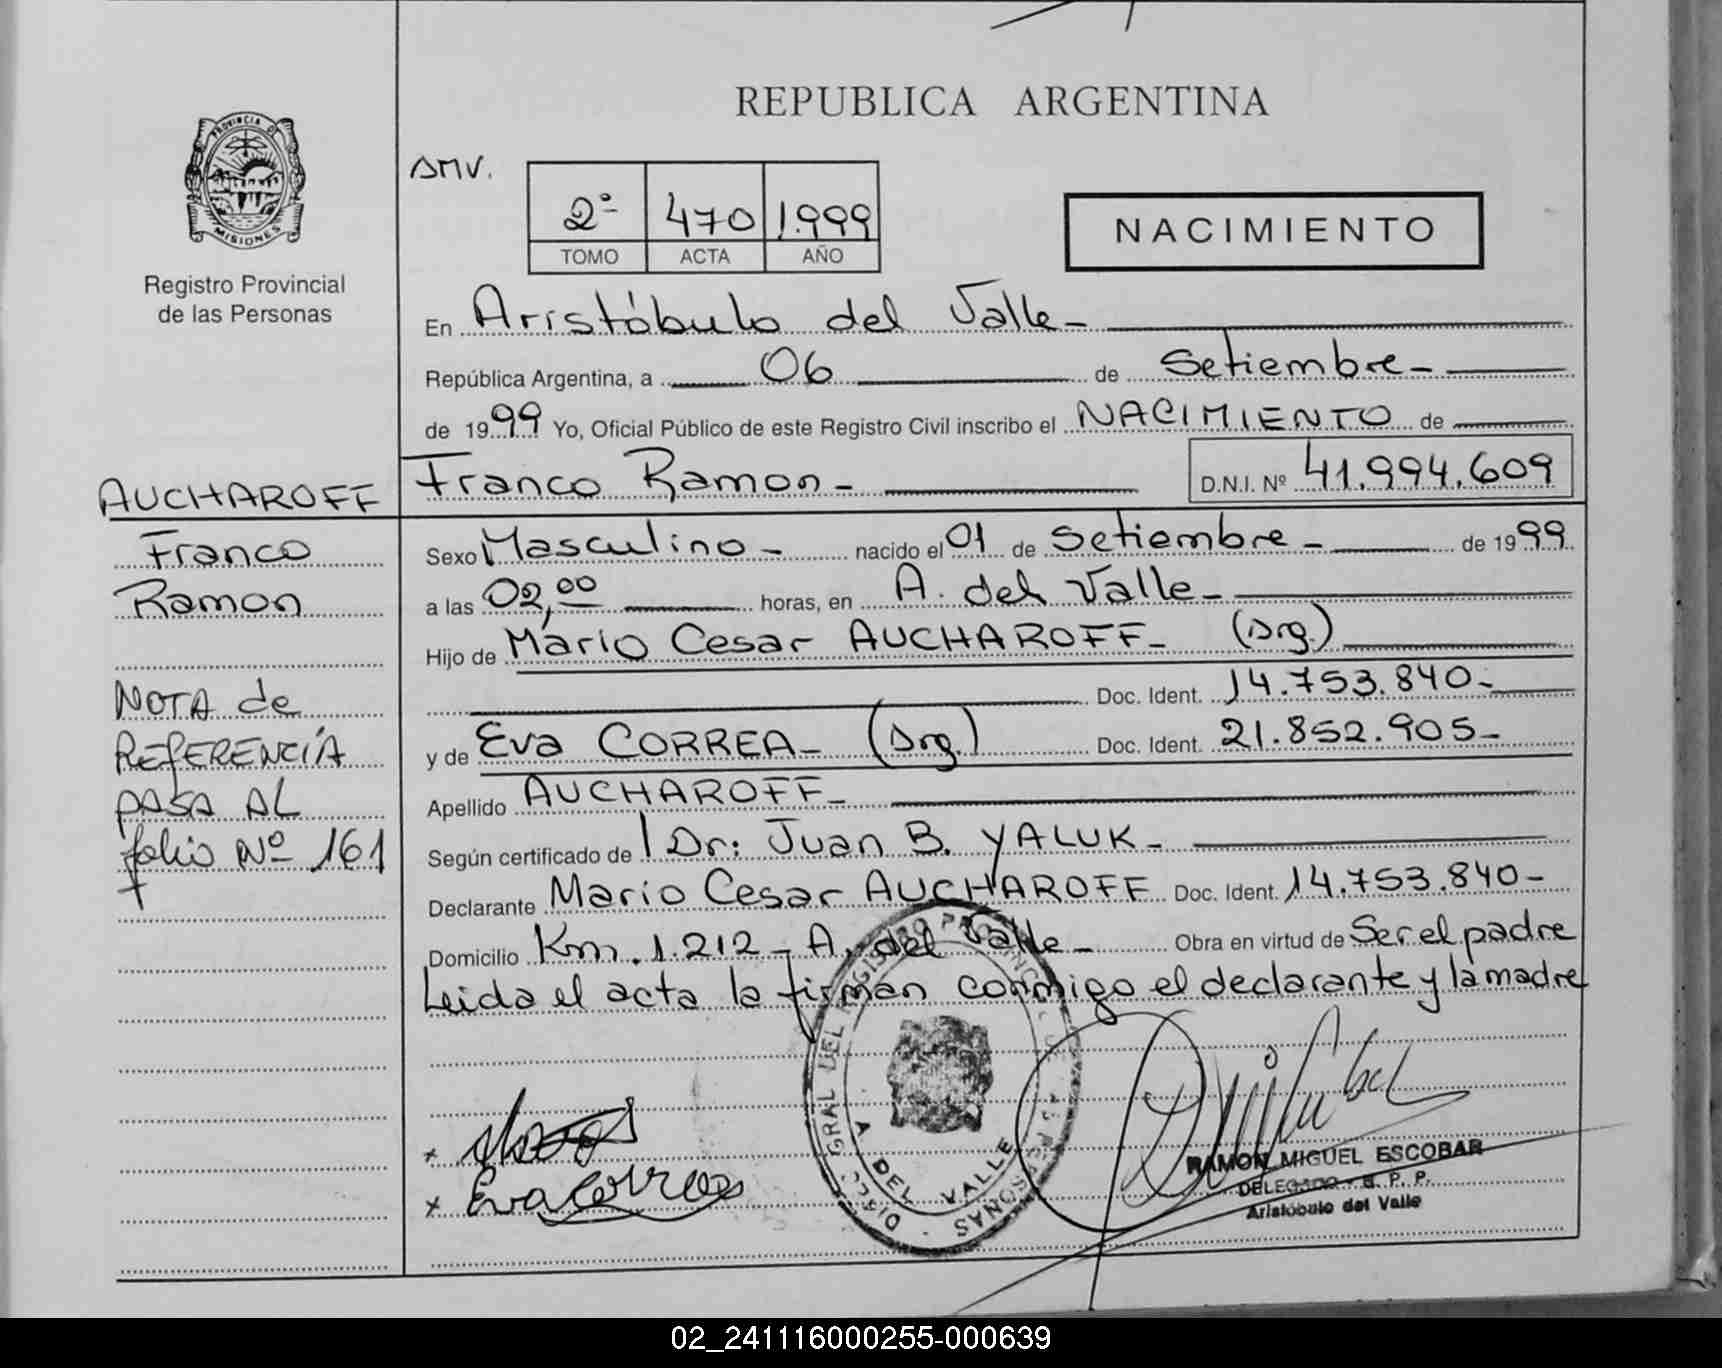 REPUBLICA ARGENTINA
PROVINCIA DE
MISIONES
Registro Provincial
de las Personas
SMV.
2º 470 1.999
TOMO ACTA AÑO
NACIMIENTO
En Aristóbulo del Valle-
República Argentina, a 06 de Setiembre-
de 1999 Yo, Oficial Público de este Registro Civil inscribo el NACIMIENTO de
Franco Ramon- D.N.I. Nº 41.994.609
Sexo Masculino- nacido el 01 de Setiembre- de 1999
a las 02,00 horas, en A. del Valle-
Hijo de Mario Cesar AUCHAROFF- (Arg.)
Doc. Ident. 14.753.840-
y de Eva CORREA- (Arg.) Doc. Ident. 21.852.905-
Apellido AUCHAROFF-
Según certificado de Dr: Juan B. YALUK-
Declarante Mario Cesar AUCHAROFF Doc. Ident. 14.753.840-
Domicilio Km. 1.212- A. del Valle- Obra en virtud de Ser el padre
Leida el acta la firman conmigo el declarante y la madre
AUCHAROFF
Franco
Ramon
NOTA de
REFERENCIA
PASA AL
folio Nº 161
Eva Correa
A DEL VALLE
RAMON MIGUEL ESCOBAR
DELEGADO R. P. P.
Aristóbulo del Valle
02_241116000255-000639